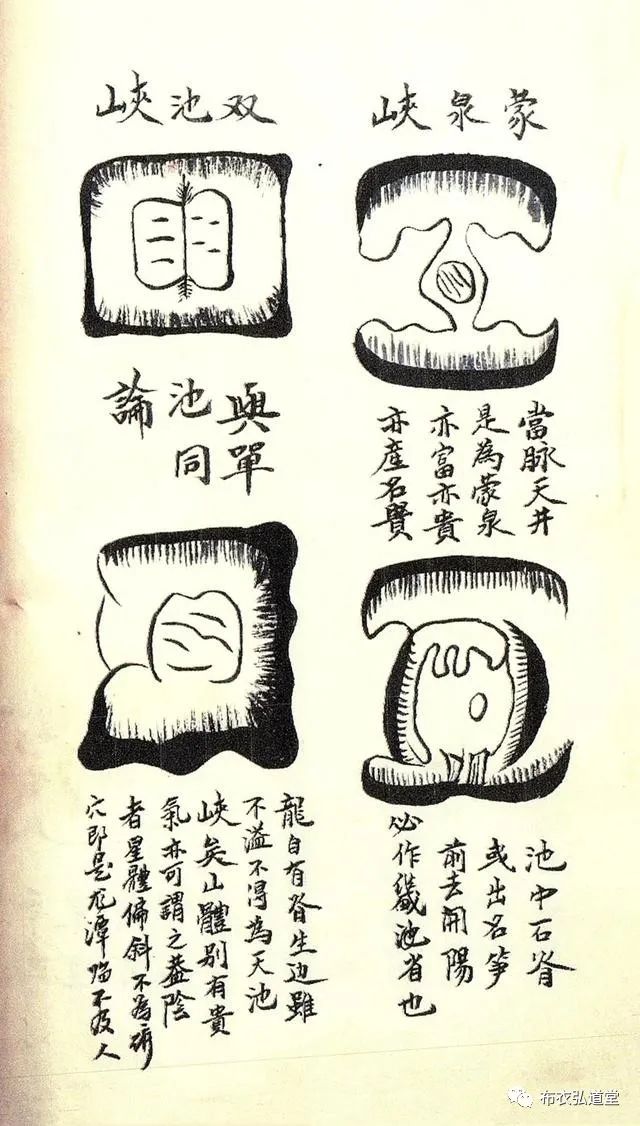 蒙泉峽
當脉天井
是為蒙泉
亦富亦貴
亦產名賢
池中石脊
或出名笋
前去開陽
必作畿池省也
双池峽
與單
池同
論
龍自有脊生边雖
不溢不得為天池
峽矣山體别有貴
氣亦可謂之葢陰
者星體偏斜不為
穴即是龙潭不及人
布衣弘道堂